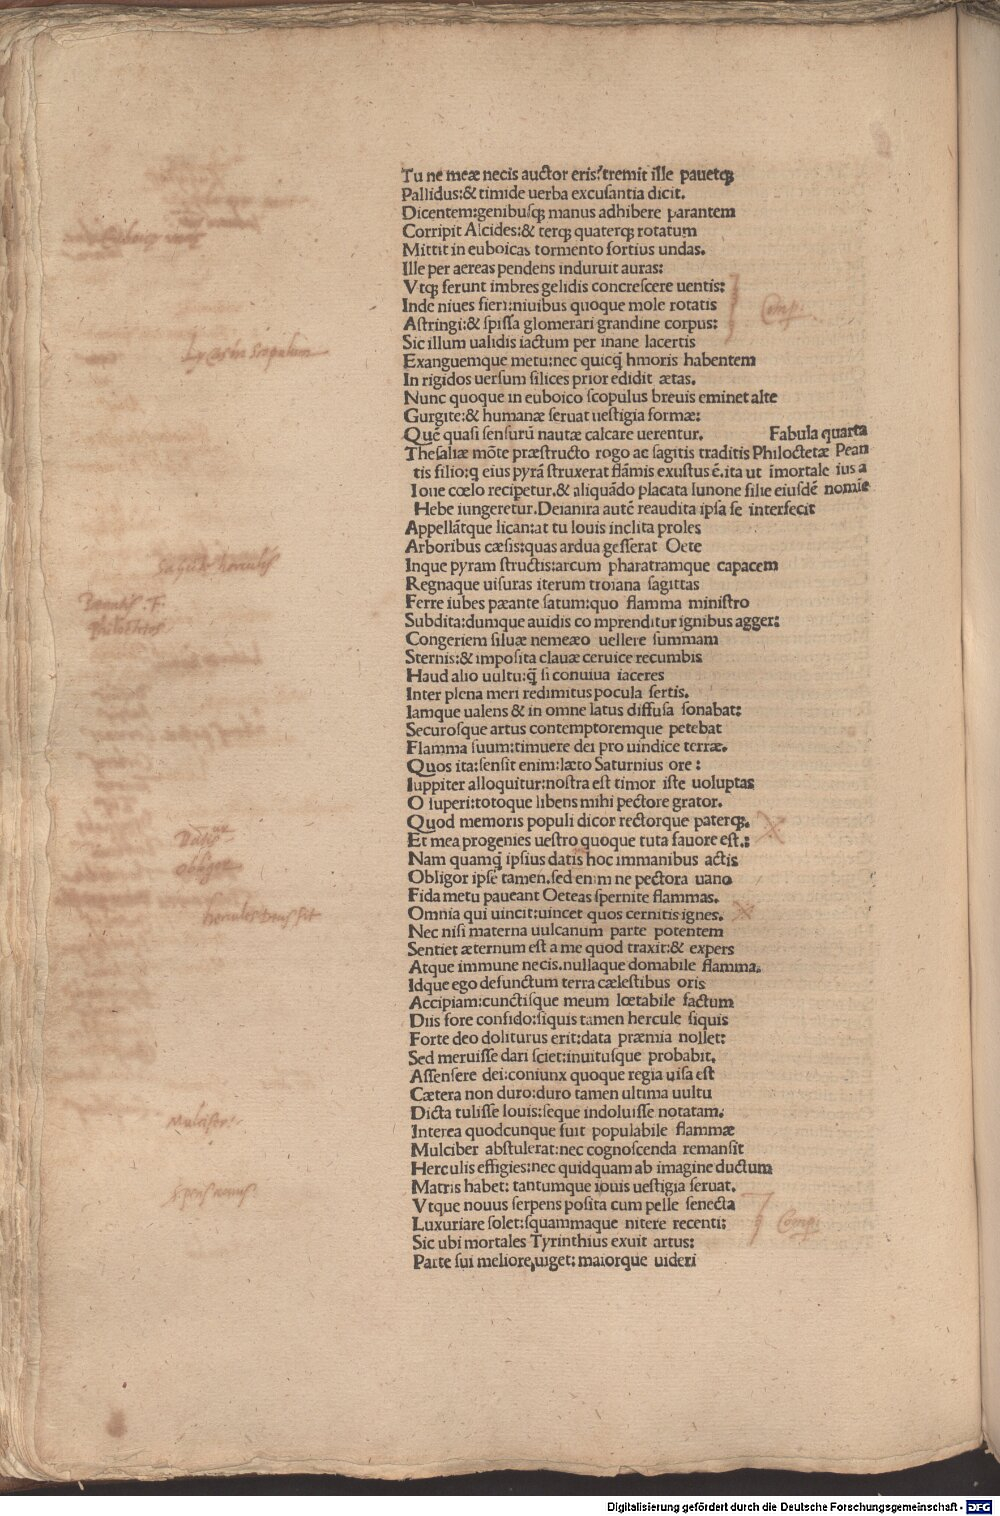 Tu ne meæ necis auctor eris? tremit ille pauetqꝫ
Pallidus:& timide uerba excusantia dicit.
Dicentem:genibusqꝫ manus adhibere parantem
Corripit Alcides:& terqꝫ quaterqꝫ rotatum
Mittit in euboicas tormento fortius undas.
Ille per aereas pendens induruit auras:
Vtqꝫ ferunt imbres gelidis concrescere uentis:
Inde niues fieri:niuibus quoque mole rotatis
Astringi:& spissa glomerari grandine corpus:
Comp:
Sic illum ualidis iactum per inane lacertis
Lycas in scopulum
Exanguemque metu:nec quicq̃ hmoris habentem
In rigidos uersum silices prior edidit ætas.
Nunc quoque in euboico scopulus breuis eminet alte
Gurgite:& humanæ seruat uestigia formæ:
Quē quasi sensurū nautæ calcare uerentur. Fabula quarta
Thesaliæ mōte præstructo rogo ac sagitis traditis Philoctetæ Pean
tis filio:q eius pyrā struxerat flāmis exustus ē.ita ut īmortale ius a
Ioue cœlo recipetur.& aliquādo placata Iunone filie eiusdē nomīe
Hebe iungeretur.Deianira autē reaudita ipsa se interfecit
Appellātque lican:at tu Iouis inclita proles
Arboribus cæsis:quas ardua gesserat Oete
Inque pyram structis:arcum pharatramque capacem
Sagitte herculis
Regnaque uisuras iterum troiana sagittas
Ferre iubes pæante satum:quo flamma ministro
Peantis .F.
philoctetes
Subdita:dumque auidis co mprenditur ignibus agger:
Congeriem siluæ nemeæo uellere summam
Sternis:& imposita clauæ ceruice recumbis
Haud alio uultu:q̃ si conuiua iaceres
Inter plena meri redimitus pocula sertis.
Iamque ualens & in omne latus diffusa sonabat:
Securosque artus contemptoremque petebat
Flamma suum:timuere dei pro uindice terræ.
Quos ita:sensit enim:læto Saturnius ore :
Iuppiter alloquitur:nostra est timor iste uoluptas
O superi:totoque libens mihi pectore grator.
Quod memoris populi dicor rectorque paterqꝫ.
Et mea progenies uestro quoque tuta fauore est.:
Nam quamq̃ ipsius datis hoc immanibus actis
Obligor ipse tamen.sed enim ne pectora uano
obligor
Fida metu paueant Oeteas spernite flammas.
Omnia qui uincit:uincet quos cernitis ignes.
hercules deus fit
Nec nisi materna uulcanum parte potentem
Sentiet æternum est a me quod traxit:& expers
Atque immune necis.nullaque domabile flamma.
Idque ego defunctum terra cælestibus oris
Accipiam:cunctisque meum lœtabile factum
Diis fore confido:siquis tamen hercule siquis
Forte deo doliturus erit:data præmia nollet:
Sed meruisse dari sciet:inuitusque probabit.
Assensere dei:coniunx quoque regia uisa est
Cætera non duro:duro tamen ultima uultu
Dicta tulisse Iouis:seque indoluisse notatam.
Interea quodcunque fuit populabile flammæ
Mulciber
Mulciber abstulerat:nec cognoscenda remansit
Herculis effigies:nec quidquam ab imagine ductum
Matris habet: tantumque iouis uestigia seruat.
Vtque nouus serpens posita cum pelle senecta
Luxuriare solet:squammaque nitere recenti:
Comp:
Sic ubi mortales Tyrinthius exuit artus:
Parte sui meliore,uiget: maiorque uideri
Digitalisierung gefördert durch die Deutsche Forschungsgemeinschaft - DFG